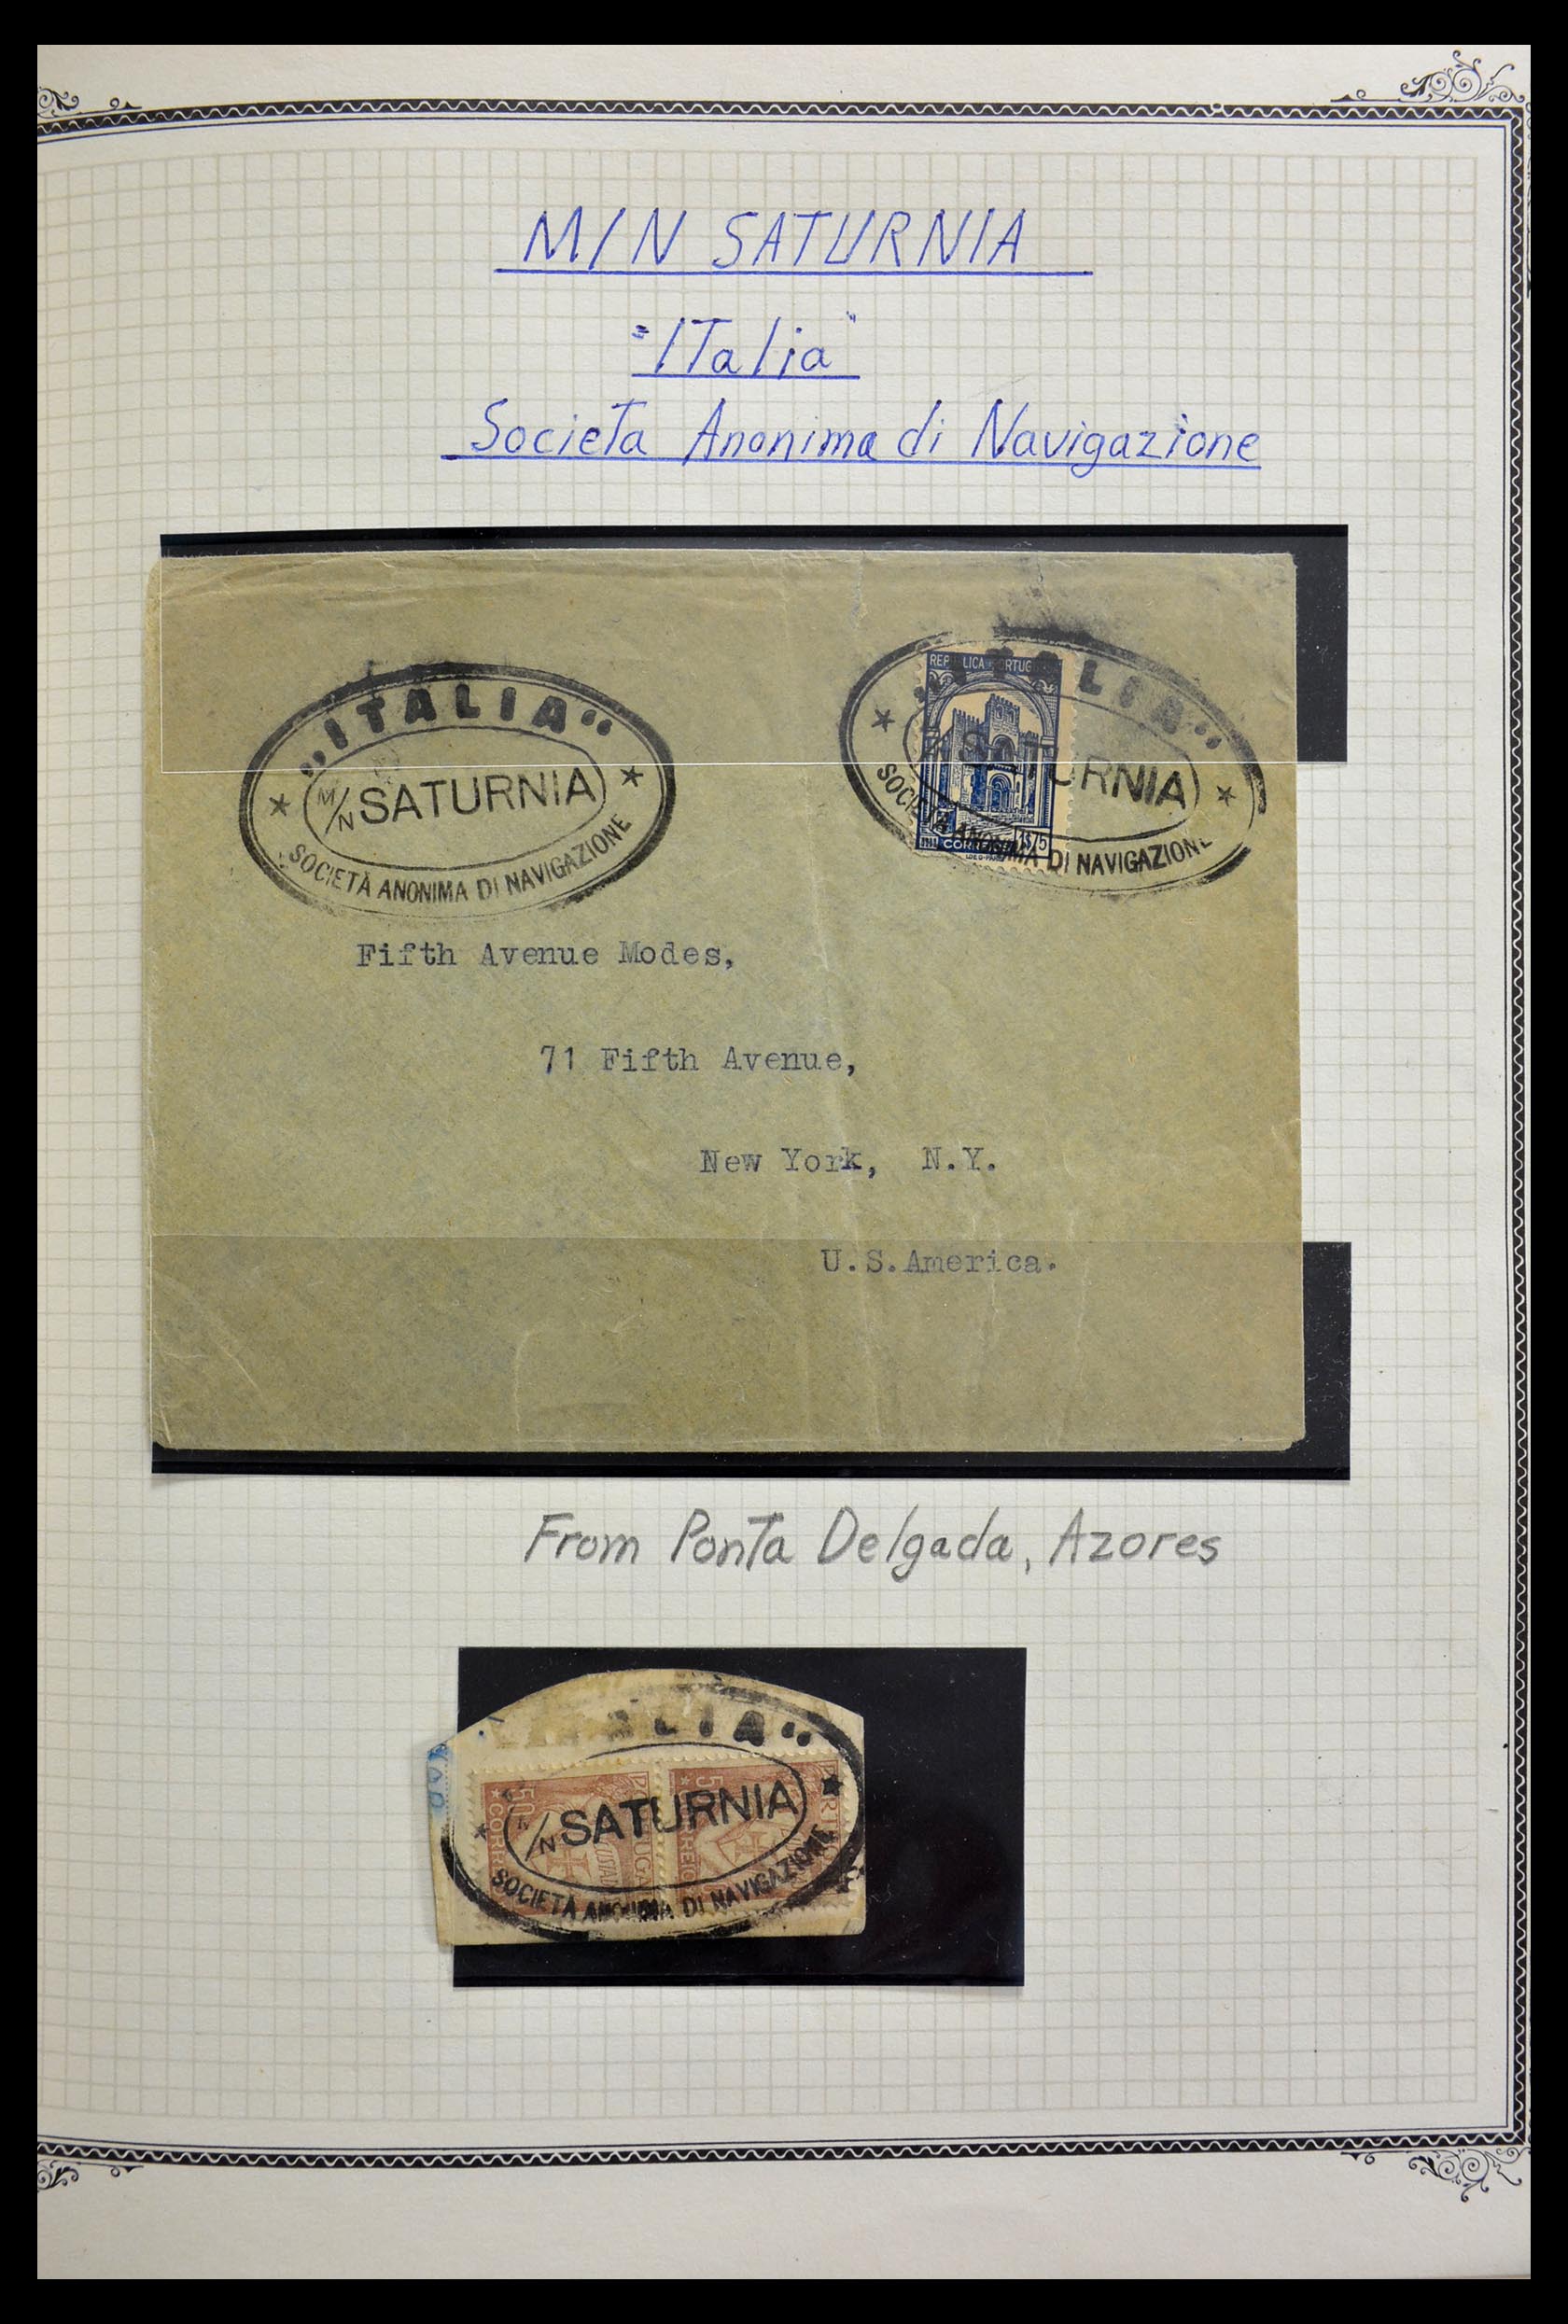 M/N SATURNIA
"ITalia"
SocieTa Anonima di Navigazione
„ITALIA"
M/N SATURNIA
SOCIETÀ ANONIMA DI NAVIGAZIONE
REP LICA ORTUG
LIA"
SATURNIA
SOCIETÀ ANONIMA DI NAVIGAZIONE
CORRE 1$75
Fifth Avenue Modes,
71 Fifth Avenue,
New York, N.Y.
U.S.America.
From PonTa Delgada, Azores
LIA"
/N SATURNIA
SOCIETÀ ANONIMA DI NAVIGAZIONE